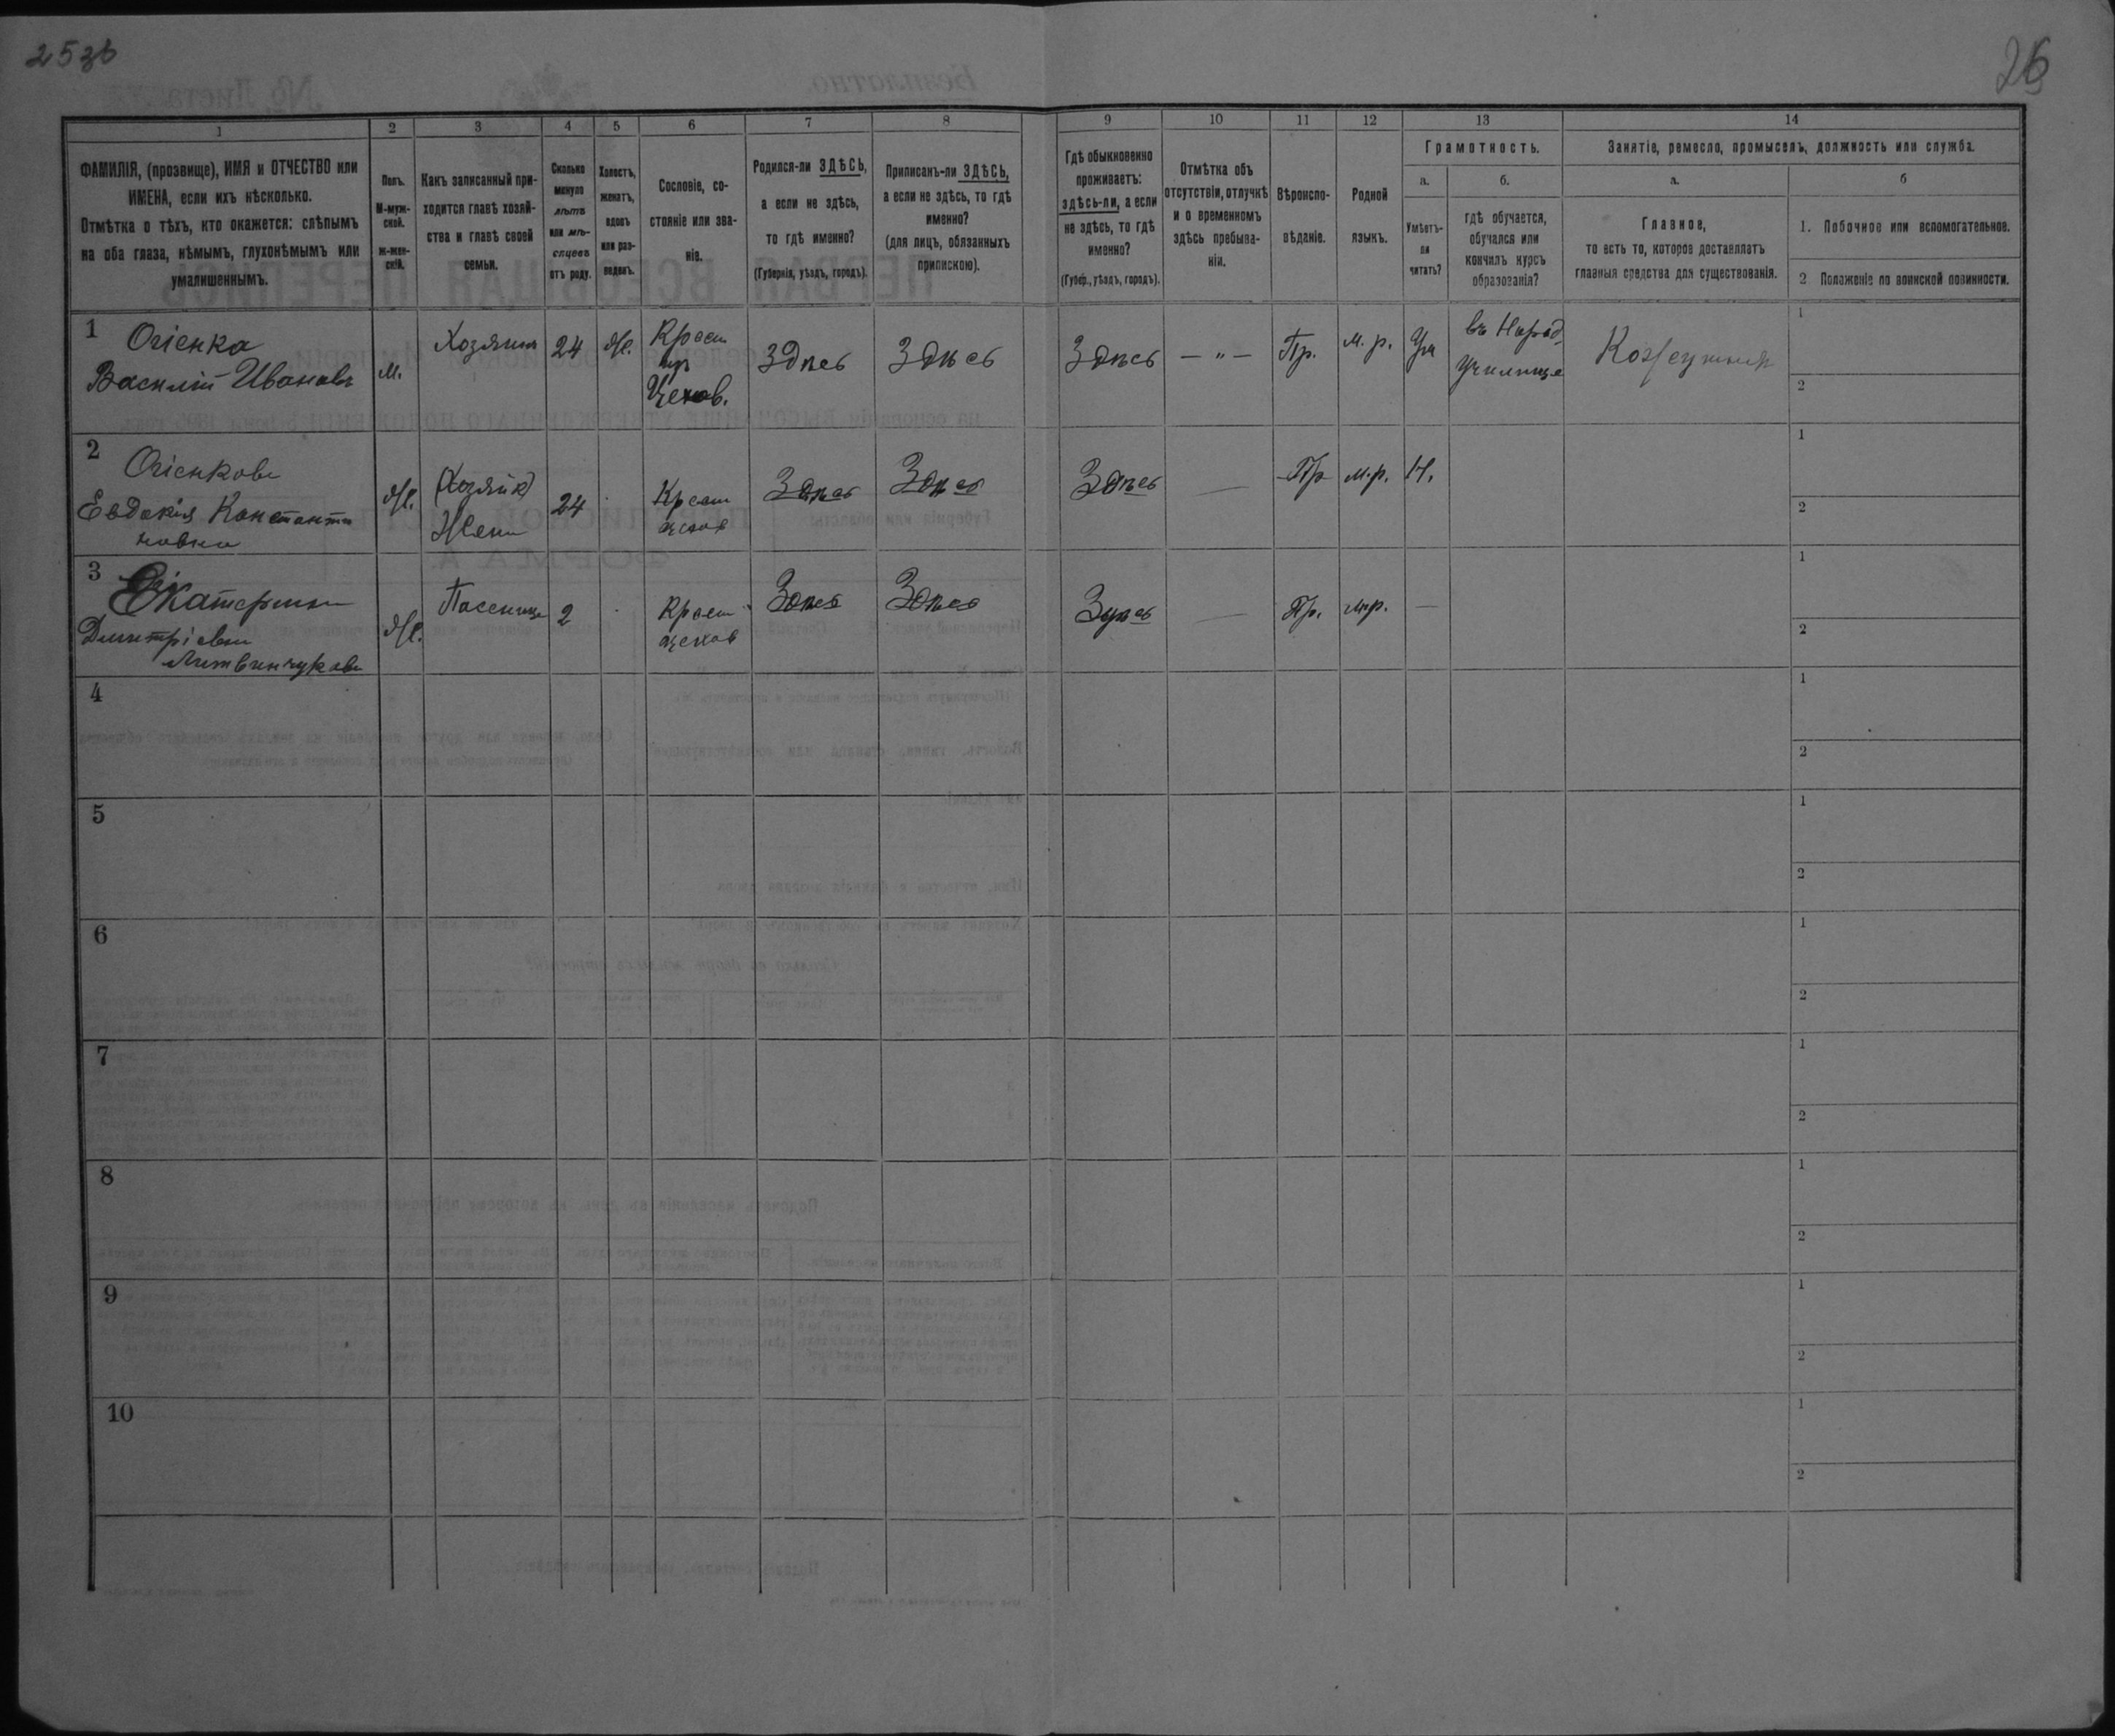 25зв
26
1
2
3
4
5
6
7
8
9
10
11
12
13
14
ФАМИЛІЯ, (прозвище), ИМЯ и ОТЧЕСТВО или
ИМЕНА, если ихъ нѣсколько.
Отмѣтка о тѣхъ, кто окажется: слѣпымъ
на оба глаза, нѣмымъ, глухонѣмымъ или
умалишеннымъ.
Полъ.
М-муж-
ской.
ж-жен-
скій.
Какъ записанный при-
ходится главѣ хозяй-
ства и главѣ своей
семьи.
Сколько
минуло
лѣтъ
или мѣ-
сяцевъ
отъ роду.
Холостъ,
женатъ,
вдовъ
или раз-
веденъ.
Сословіе, со-
стояніе или зва-
ніе.
Родился-ли ЗДѢСЬ,
а если не здѣсь,
то гдѣ именно?
(Губернія, уѣздъ, городъ).
Приписанъ-ли ЗДѢСЬ,
а если не здѣсь, то гдѣ
именно?
(для лицъ, обязанныхъ
припискою).
Гдѣ обыкновенно
проживаетъ:
здѣсь-ли, а если
не здѣсь, то гдѣ
именно?
(Губер., уѣздъ, городъ).
Отмѣтка объ
отсутствіи, отлучкѣ
и о временномъ
здѣсь пребыва-
ніи.
Вѣроиспо-
вѣданіе.
Родной
языкъ.
Грамотность.
а.
Умѣетъ-
ли
читать?
б.
гдѣ обучается,
обучался или
кончилъ курсъ
образованія?
Занятіе, ремесло, промыселъ, должность или служба.
а.
Главное,
то есть то, которое доставляетъ
главныя средства для существованія.
б
1. Побочное или вспомогательное.
2 Положеніе по воинской повинности.
1
Огіенка
Василій Ивановъ
м.
Хозяин
24
Ж.
Крест
Здѣсь
Здѣсь
Здѣсь
— „ —
Пр.
м. р.
Ум
въ Народ.
училище
1
2
2
Огіенкова
Евдокія Константи
новна
Ж.
(Хозяйк)
Жена
24
Крест
Здѣсь
Здѣсь
Здѣсь
—
Пр
м.р.
Н.
1
2
3
Екатерина
Дмитріева
Литвинчукова
Ж.
2
Крест
Здѣсь
Здѣсь
Здѣсь
—
Пр.
мр.
—
1
2
4
1
2
5
1
2
6
1
2
7
1
2
8
1
2
9
1
2
10
1
2